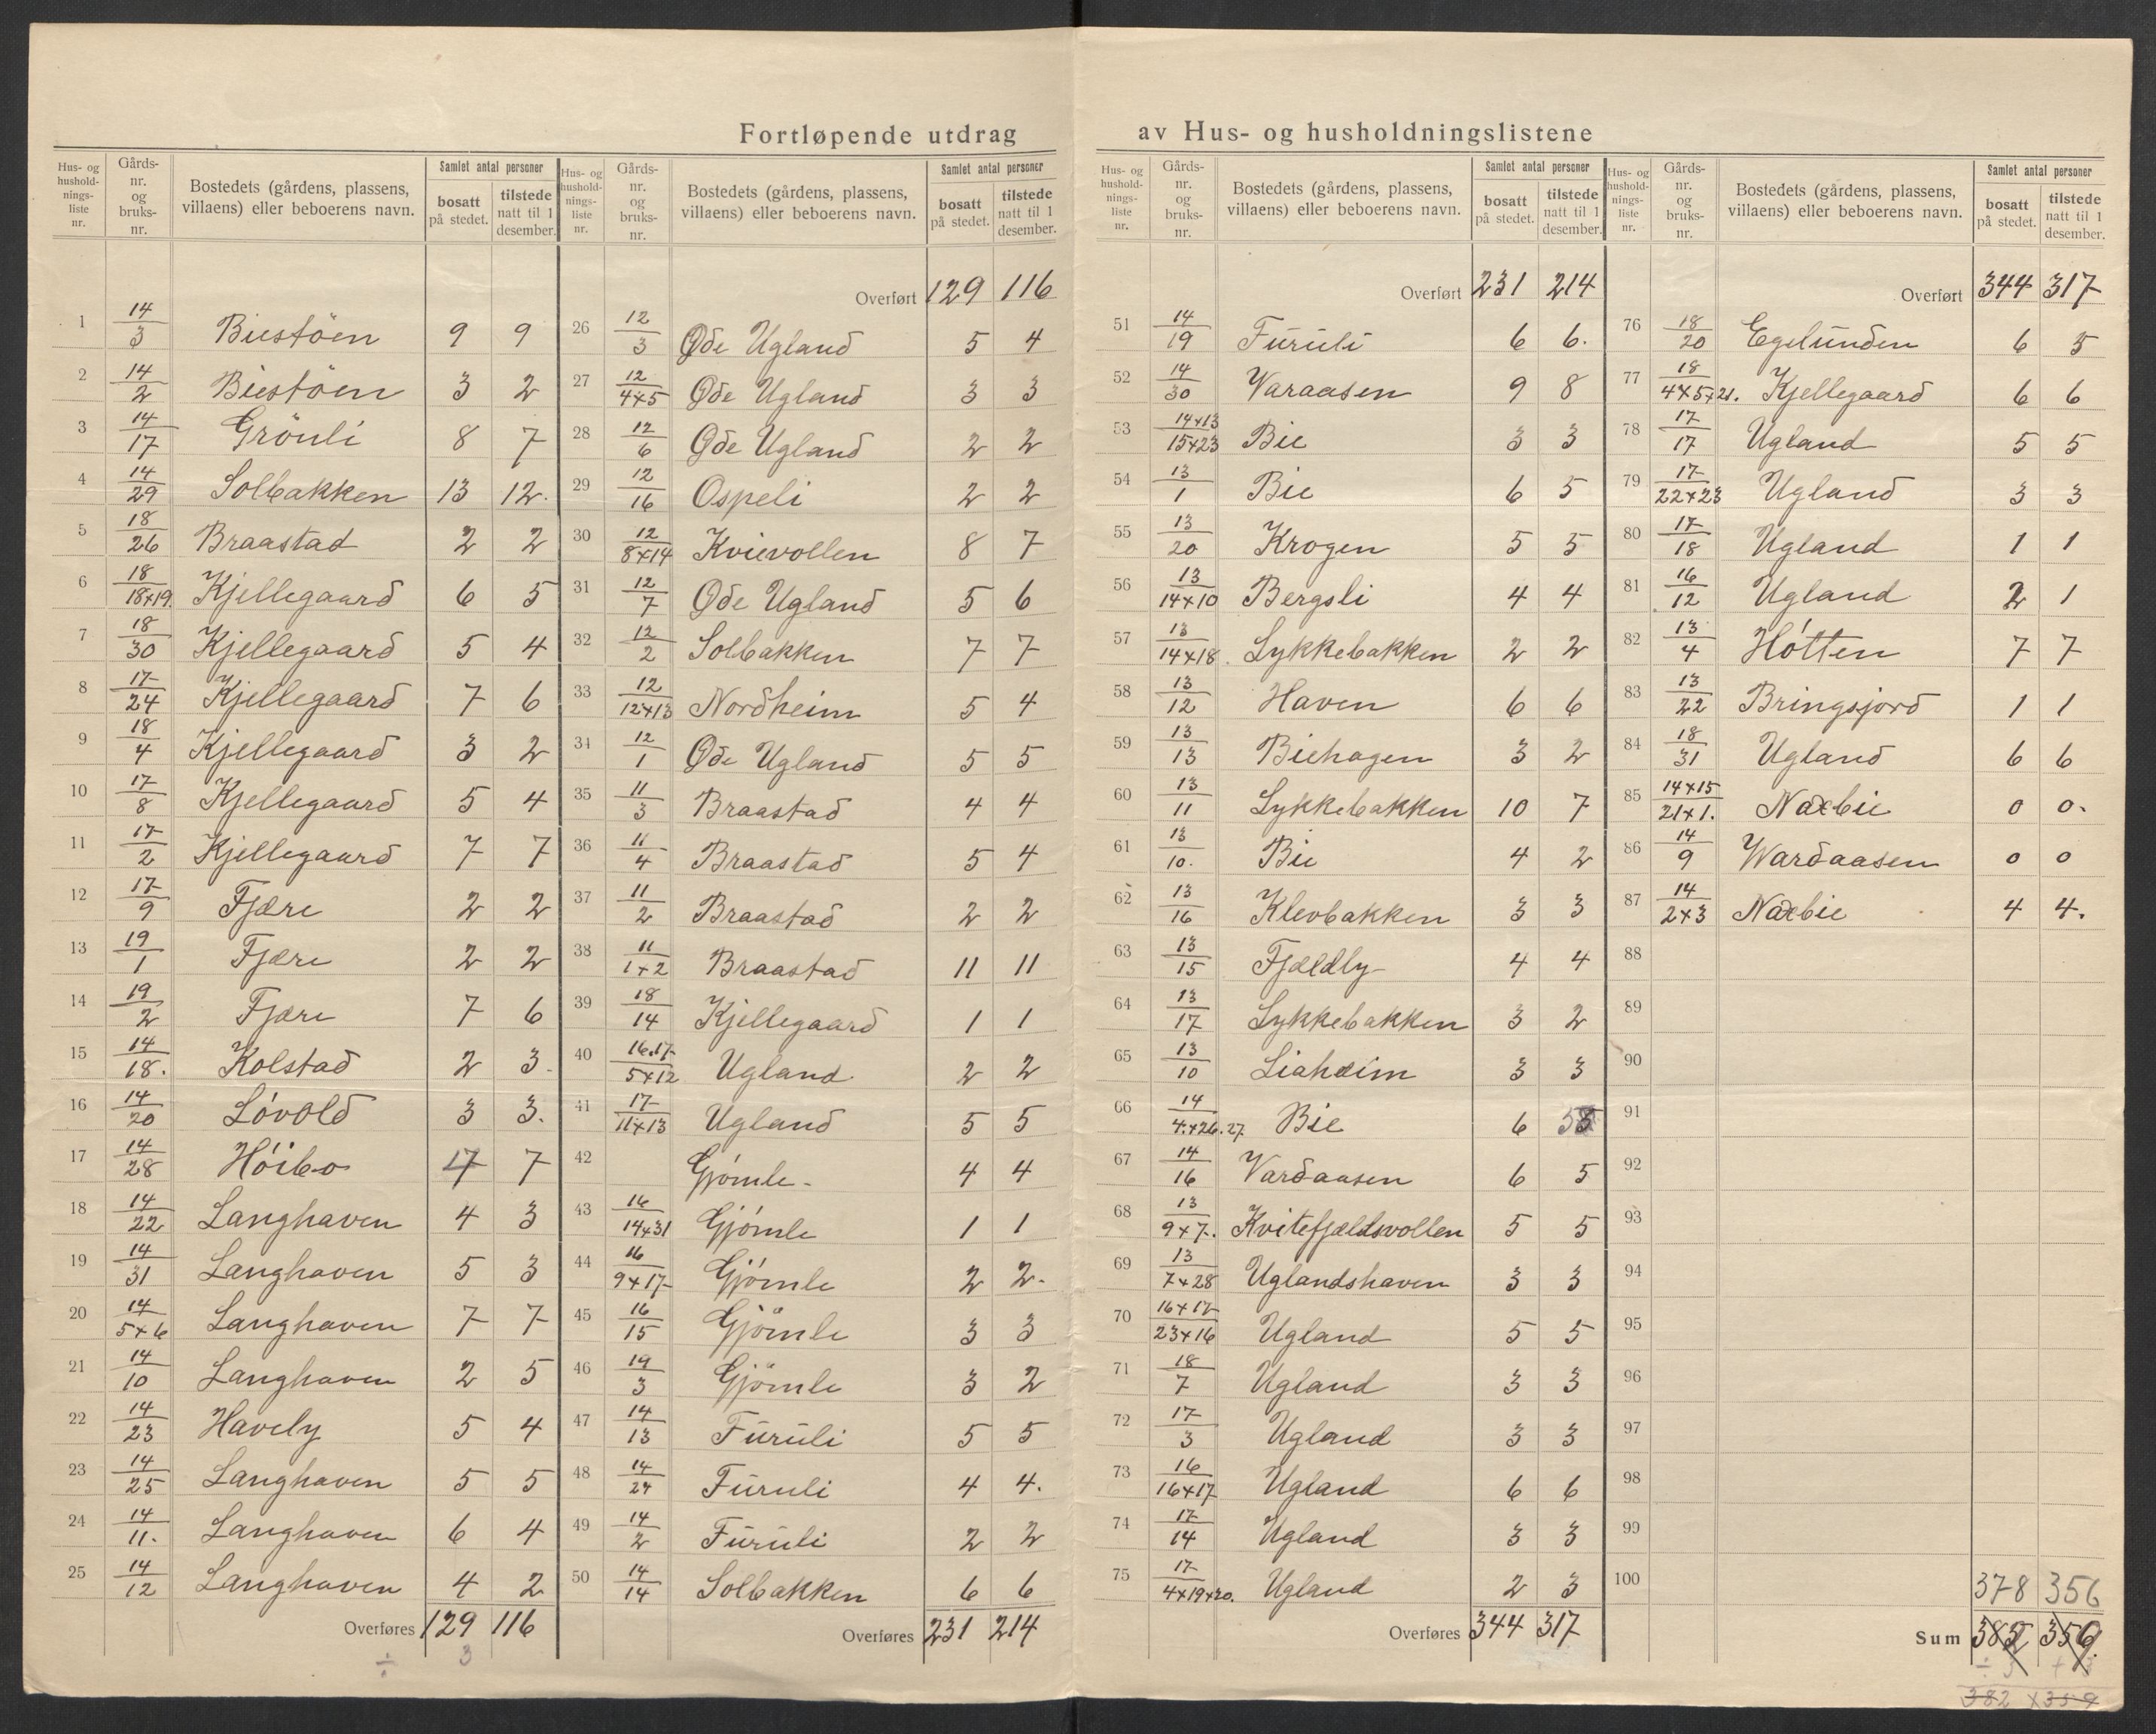 Fortløpende utdrag av Hus- og husholdningslistene
Hus- og husholdningsliste nr. | Gårds-nr. og bruks-nr. | Bostedets (gårdens, plassens, villaens) eller beboerens navn. | Samlet antal personer bosatt på stedet. | tilstede natt til 1 desember.
1 14/3 Biestöen 9 9
2 14/2 Biestöen 3 2
3 14/17 Grönli 8 7
4 14/29 Solbakken 13 12.
5 18/26 Braastad 2 2
6 18/18+19. Kjellegaard 6 5
7 18/30 Kjellegaard 5 4
8 17/24 Kjellegaard 7 6
9 18/4 Kjellegaard 3 2
10 17/8 Kjellegaard 5 4
11 17/2 Kjellegaard 7 7
12 17/9 Fjære 2 2
13 19/1 Fjære 2 2
14 19/2 Fjære 7 6
15 14/18. Kolstad 2 3.
16 14/20 Lóvold 3 3.
17 14/28 Hóibo 7 7
18 14/22 Langhaven 4 3
19 14/31 Langhaven 5 3
20 14/5+6 Langhaven 7 7
21 14/10 Langhaven 2 5
22 14/23 Havely 5 4
23 14/25 Langhaven 5 5
24 14/11. Langhaven 6 4
25 14/12 Langhaven 4 2
Overføres 129 116
÷ 3
Hus- og husholdningsliste nr. | Gårds-nr. og bruks-nr. | Bostedets (gårdens, plassens, villaens) eller beboerens navn. | Samlet antal personer bosatt på stedet. | tilstede natt til 1 desember.
Overført 129 116
26 12/3 Øde Ugland 5 4
27 12/4+5 Øde Ugland 3 3
28 12/6 Øde Ugland 2 2
29 12/16 Ospeli 2 2
30 12/8+14 Kvievollen 8 7
31 12/7 Øde Ugland 5 6
32 12/2 Solbakken 7 7
33 12/12+13 Nordheim 5 4
34 12/1 Øde Ugland 5 5
35 11/3 Braastad 4 4
36 11/4 Braastad 5 4
37 11/2 Braastad 2 2
38 11/1+2 Braastad 11 11
39 18/14 Kjellegaard 1 1
40 16.17/5+12 Ugland 2 2
41 17/11+13 Ugland 5 5
42 Gjómle- 4 4
43 16/14+31 Gjómle 1 1
44 16/9+17 Gjómle 2 2-
45 16/15 Gjömle 3 3
46 19/3 Gjömle 3 2
47 14/13 Furuli 5 5
48 14/24 Furuli 4 4.
49 14/2 Furuli 2 2
50 14/14 Solbakken 6 6
Overføres 231 214
Hus- og husholdningsliste nr. | Gårds-nr. og bruks-nr. | Bostedets (gårdens, plassens, villaens) eller beboerens navn. | Samlet antal personer bosatt på stedet. | tilstede natt til 1 desember.
Overført 231 214
51 14/19 Furuli 6 6.
52 14/30 Varaasen 9 8
53 14+13/15+23 Bie 3 3
54 13/1 Bie 6 5
55 13/20 Krogen 5 5
56 13/14+10 Bergsli 4 4
57 13/14+18. Lykkebakken 2 2
58 13/12 Haven 6 6
59 13/13 Biehagen 3 2
60 13/11 Lykkebakken 10 7
61 13/10. Bie 4 2
62 13/16 Klevbakken 3 3
63 13/15 Fjældly 4 4
64 13/17 Lykkebakken 3 2
65 13/10 Liaheim 3 3
66 14/4.+26.27 Bie 6 5
67 14/16 Vardaasen 6 5
68 13/9+7. Kvitefjældsvollen 5 5
69 13/7+28 Uglandshaven 3 3
70 16+17/23+16 Ugland 5 5
71 18/7 Ugland 3 3
72 17/3 Ugland 3 3
73 16/16+17 Ugland 6 6
74 17/14 Ugland 3 3
75 17/4+19+20. Ugland 2 3
Overføres 344 317
Hus- og husholdningsliste nr. | Gårds-nr. og bruks-nr. | Bostedets (gårdens, plassens, villaens) eller beboerens navn. | Samlet antal personer bosatt på stedet. | tilstede natt til 1 desember.
Overført 344 317
76 18/20 Egelunden 6 5
77 18/4+5+21. Kjellegaard 6 6
78 17/17 Ugland 5 5
79 17/22+23 Ugland 3 3
80 17/18 Ugland 1 1
81 16/12 Ugland 2 1
82 13/4 Hótten 7 7
83 13/22 Bringsjord 1 1
84 18/31 Ugland 6 6
85 14+15/21+1. Nærbie 0 0.
86 14/9 Wardaasen 0 0
87 14/2+3 Nærbie 4 4.
88
89
90
91
92
93
94
95
96
97
98
99
100
378 356
Sum 385 356
÷ 3 + 3
382 359